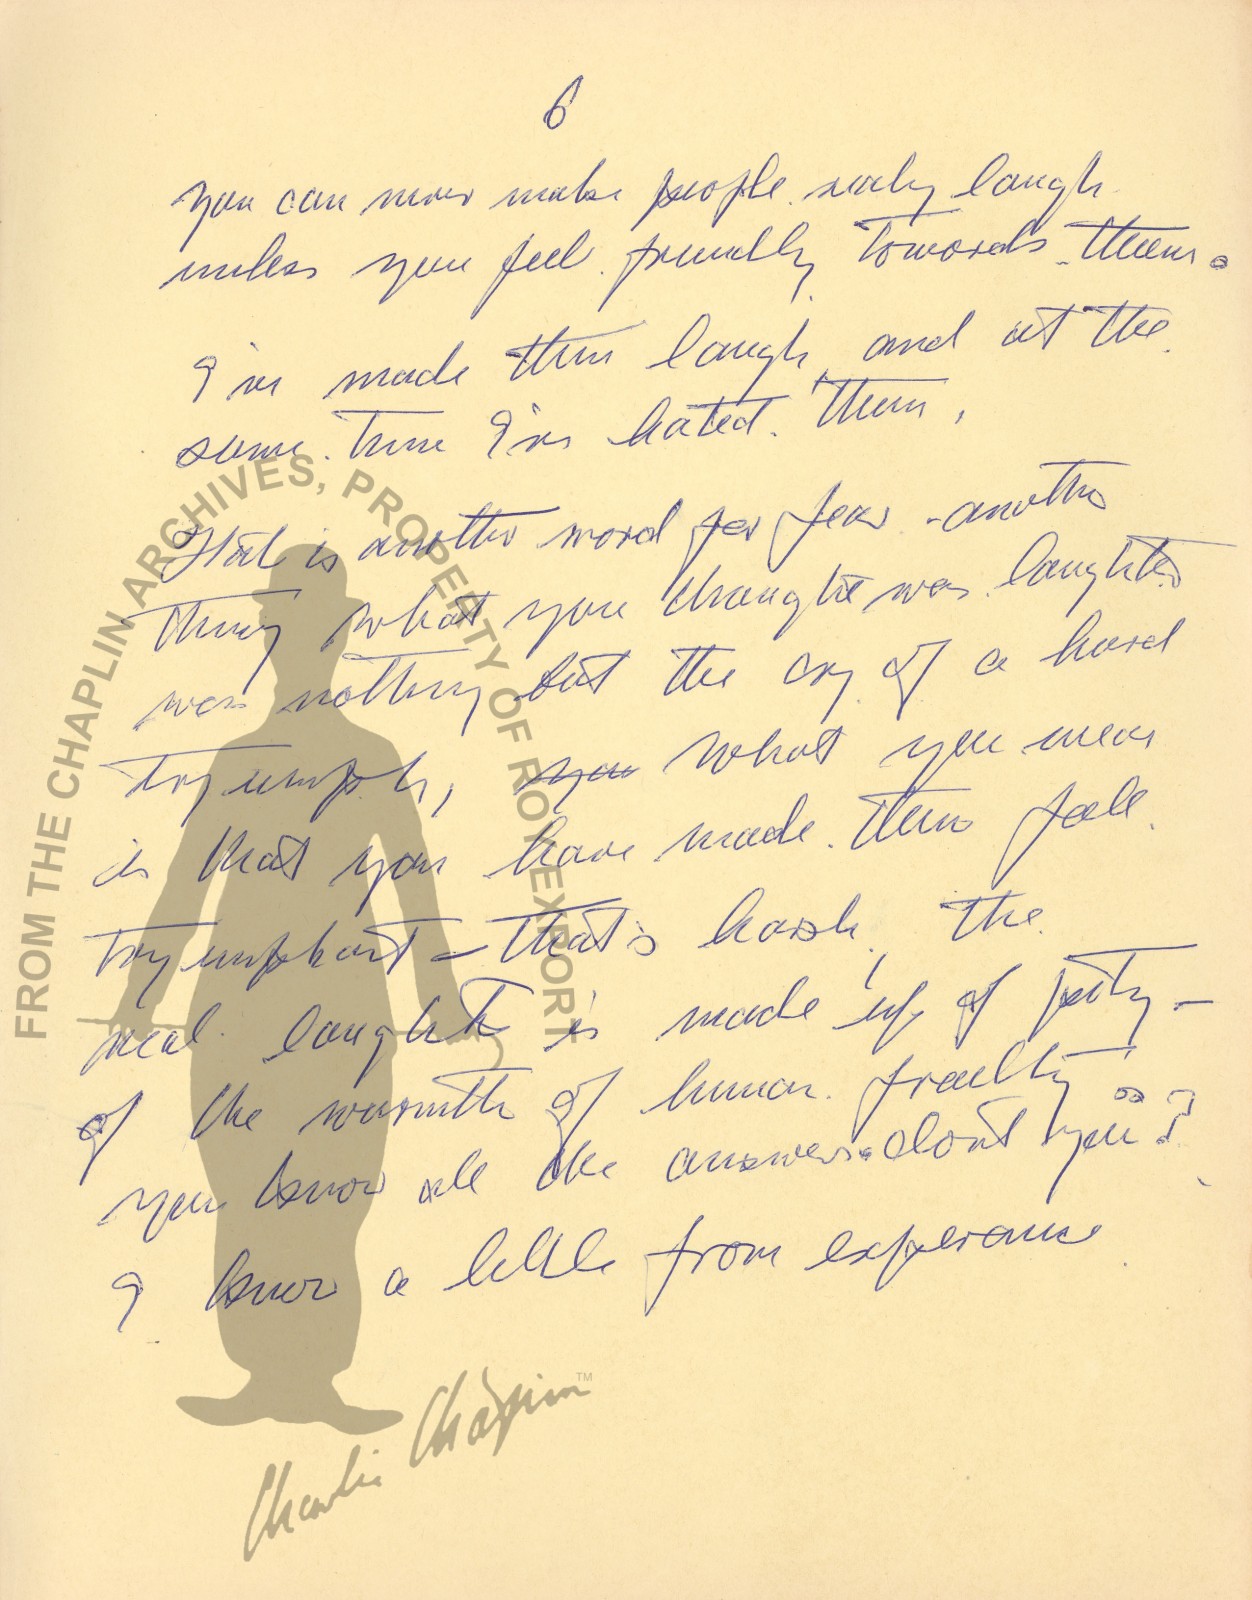 6
you can never make people realy laugh
unless you feel friendly towards them.
I've made them laugh, and at the
same time I've hated them,
Hate is another word for fear - another
thing what you thought was laughter
was nothing but the cry of a hard
tryumph, you what you mean
is that you have made them feele
tryumphant - that's harsh. the
real laughter is made up of pity -
of the warmth of human frailty
you know all the answers - dont you?
I know a little from experiance
FROM THE CHAPLIN ARCHIVES, PROPERTY OF ROY EXPORT
Charlie Chaplin™